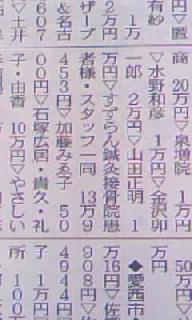 円▽匿
有紗 1
万円▽
2万円
ザーブ
&名古
607
▽土井
商 20万円▽泉増院 1万円
▽水野和彦 1万円▽金沢卯
一郎 2万円▽山田正明 1
万円▽すずらん鍼灸接骨院患
者様・スタッフ一同 13万9
453円▽加藤みゑ子 50
00円▽石塚広居・貴久・礼
子・由香 10万円▽やさしい
50万円
万円
◆愛西市
万16円▽佐
908円▽
4944円
子 1万円
所 100